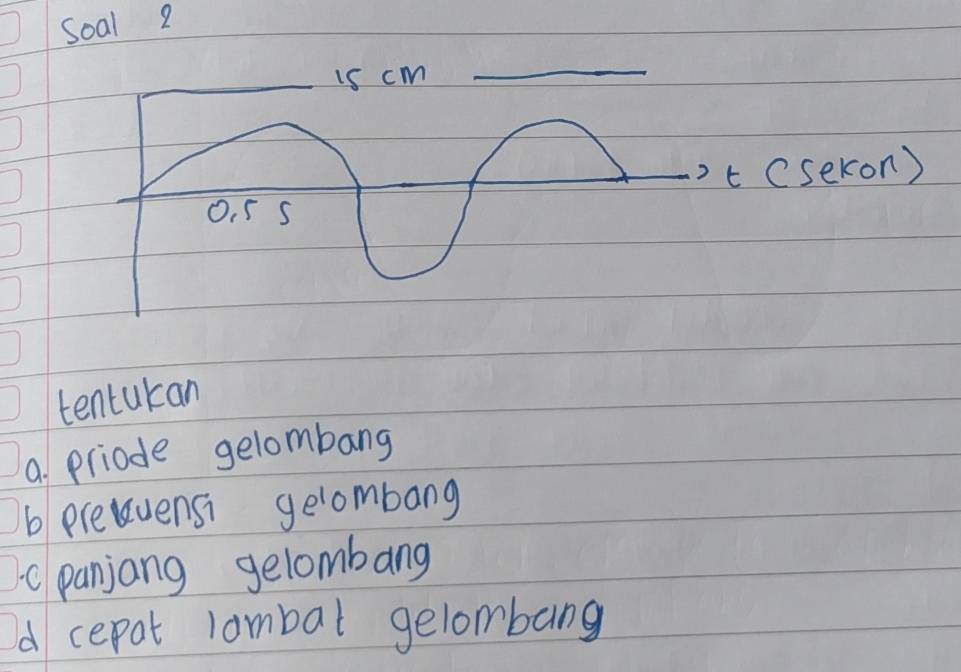 Soal 2
15 cm
t (sekon)
0,5 s
tentukan
a. priode gelombang
b prekuensi gelombang
c panjang gelombang
d cepat lambat gelombang